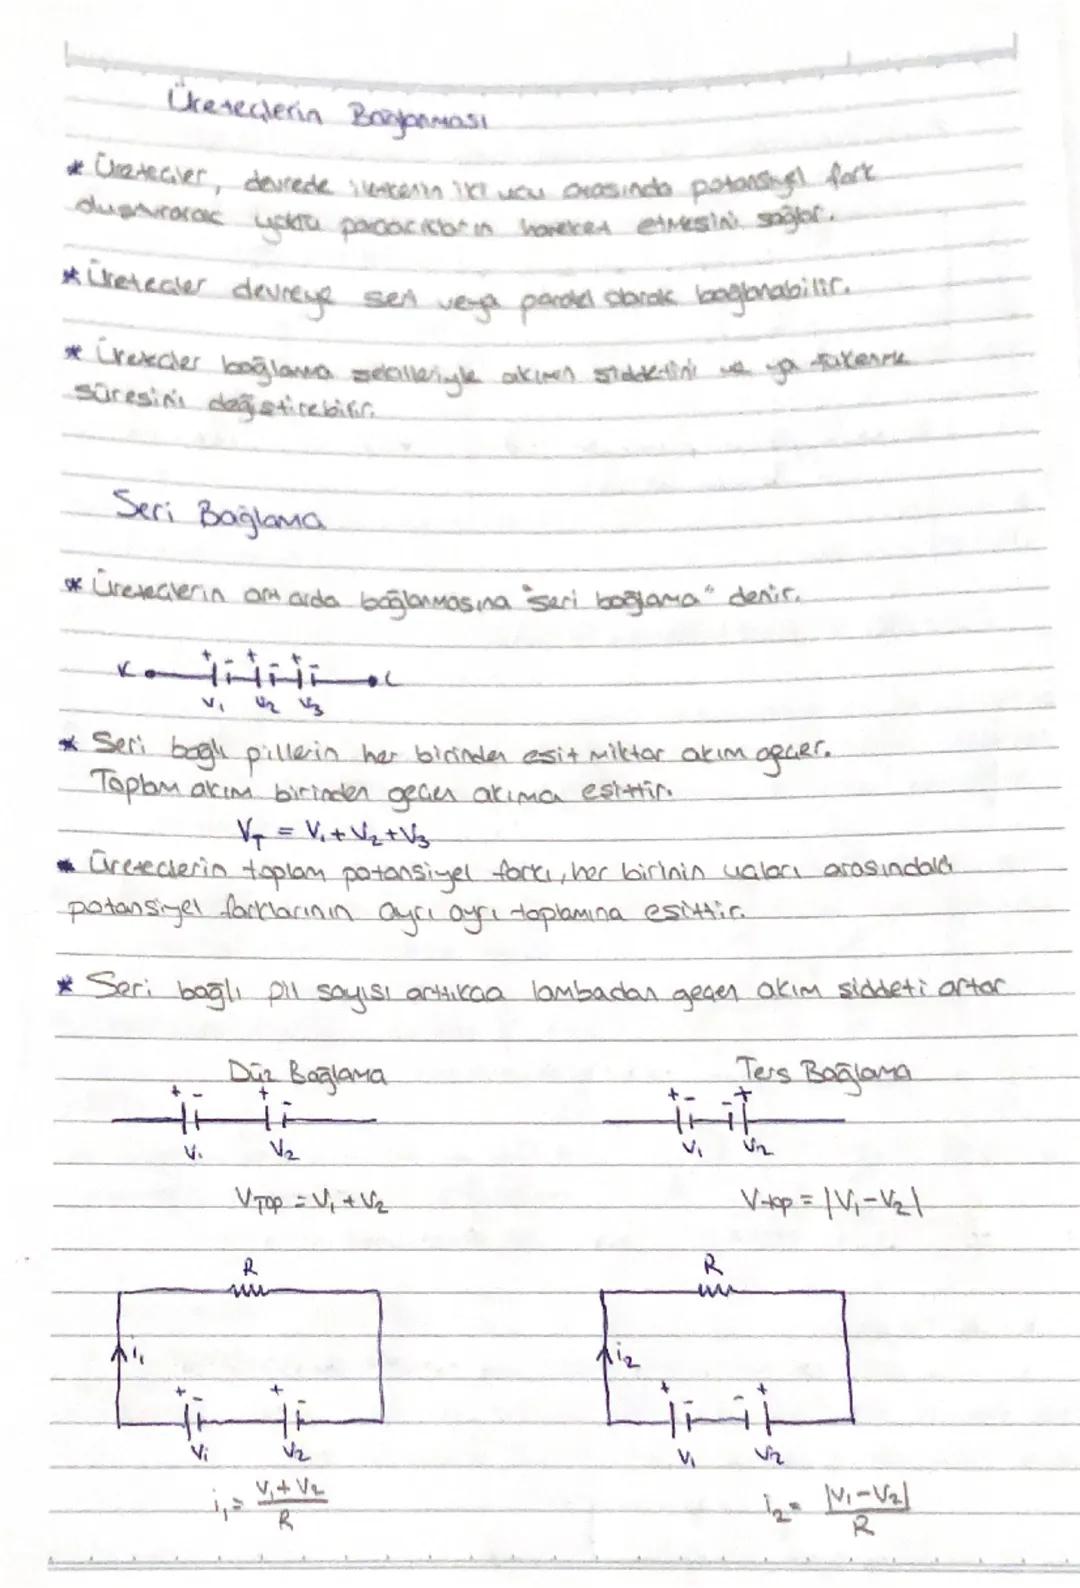 Üreteçlerin Bağlanması
* Üreteçler, devrede iletkenin iki ucu arasında potansiyel fark
oluşturarak yüklü parçacıkların hareket etmesini sağlar.
* Üreteçler devreye seri veya paralel olarak bağlanabilir.
* Üreteçler bağlanma şekilleriyle akımın şiddetini ve ya tükenme
süresini değiştirebilir.
Seri Bağlama
* Üreteçlerin art arda bağlanmasına "seri bağlama" denir.
+ - + - + -
K L
V₁ V₂ V₃
* Seri bağlı pillerin her birinden eşit miktar akım geçer.
Toplam akım birinden geçen akıma eşittir.
V_T = V₁ + V₂ + V₃
* Üreteçlerin toplam potansiyel farkı, her birinin uçları arasındaki
potansiyel farklarının ayrı ayrı toplamına eşittir.
* Seri bağlı pil sayısı arttıkça lambadan geçen akım şiddeti artar
Düz Bağlama Ters Bağlama
+ - + - + - - +
V₁ V₂ V₁ V₂
V_TOP = V₁ + V₂ V_top = |V₁ - V₂|
R R
i₁ i₂
+ - + - + - - +
V₁ V₂ V₁ V₂
i₁ = V₁ + V₂ / R i₂ = |V₁ - V₂| / R